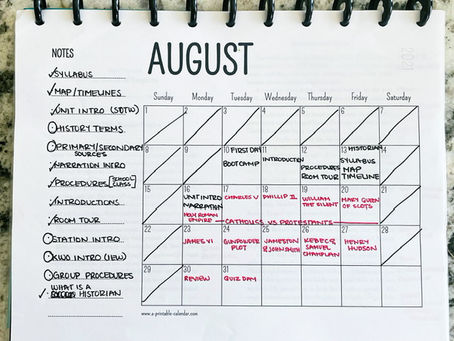 NOTES
AUGUST
2021
✓SYLLABUS
✓MAP/TIMELINES
✓UNIT INTRO (SOTW)
HISTORY TERMS
PRIMARY/SECONDARY
SOURCES
✓NARRATION INTRO
✓PROCEDURES [SCHOOL CLASS]
✓INTRODUCTIONS
✓ROOM TOUR
STATION INTRO
KWO INTRO (IEW)
GROUP PROCEDURES
✓ WHAT IS A
HISTORIAN
Sunday Monday Tuesday Wednesday Thursday Friday Saturday
1 2 3 4 5 6 7
8 9 10 FIRST DAY 11 12 13 HISTORIAN 14
BOOTCAMP INTRODUCTION PROCEDURES SYLLABUS
ROOM TOUR MAP
TIMELINE
15 16 17 18 19 20 21
UNIT INTRO CHARLES V PHILLIP II WILLIAM MARY QUEEN
NARRATION THE SILENT OF SCOTS
HOLY ROMAN
EMPIRE CATHOLICS VS PROTESTANTS
22 23 24 25 26 27 28
JAMES VI GUNPOWDER JAMESTOWN KEBEC & HENRY
PLOT & JOHN SMITH SAMUEL HUDSON
CHAMPLAIN
29 30 31
REVIEW QUIZ DAY
www.a-printable-calendar.com